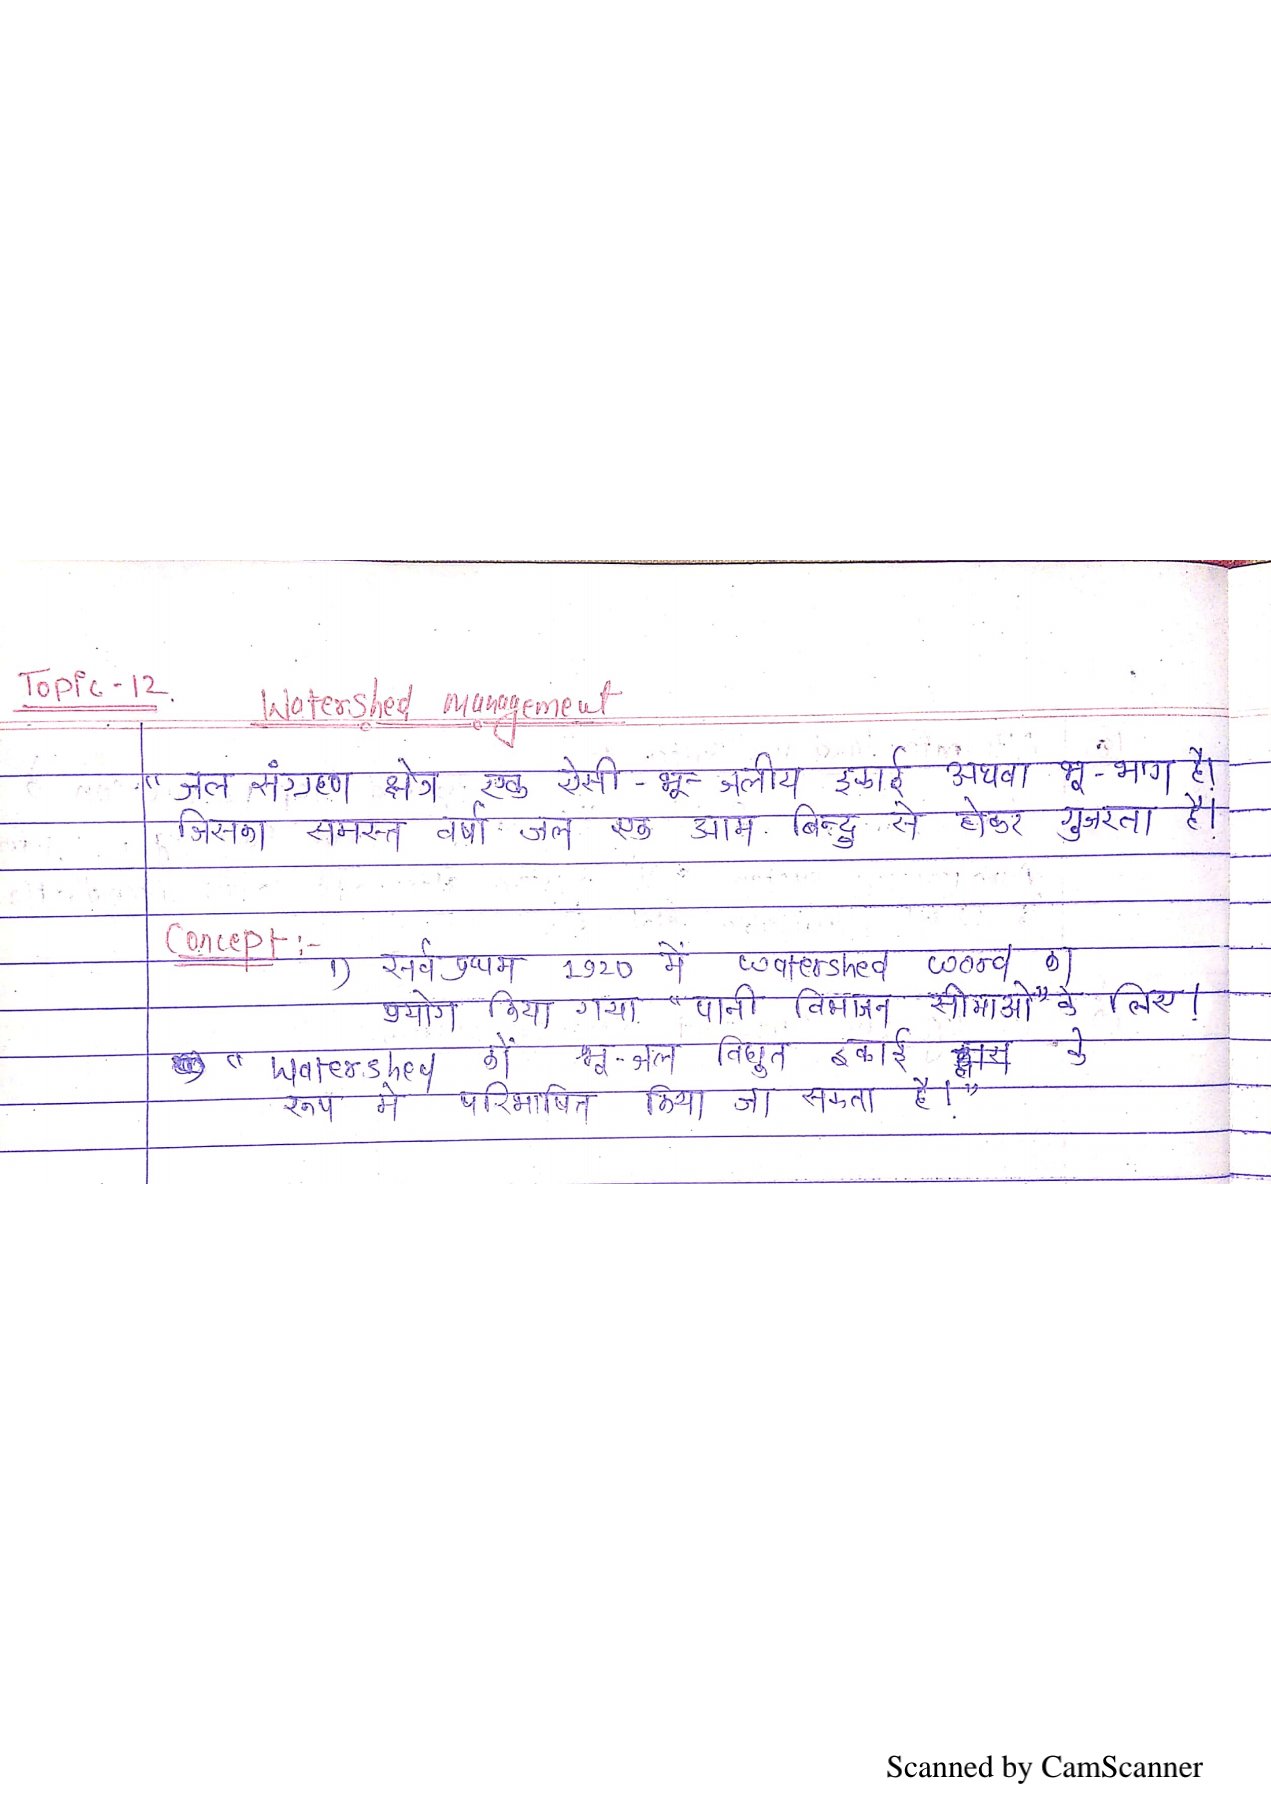 Topic-12.
Watershed management
"जल संग्रहण क्षेत्र एक ऐसी - भू- जलीय इकाई अथवा भू-भाग है।
जिसका समस्त वर्षा जल एक आम बिन्दु से होकर गुजरता है।
Concept :-
1) सर्वप्रथम 1920 में watershed word का
प्रयोग किया गया "पानी विभाजन सीमाओ" के लिए।
" Watershed को भू-जल विधुत इकाई के
रूप मे परिभाषित किया जा सकता है।"
Scanned by CamScanner